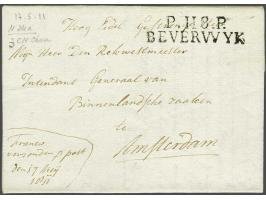 17.5.11
P.118.P.
BEVERWYK
Hoog Edel Gestrenge
Mijn Heer Den
Intendant Generaal van
Binnenlandsche zaaken
te
Amsterdam
Franco
verzonden p post
den 17 Meij
1811